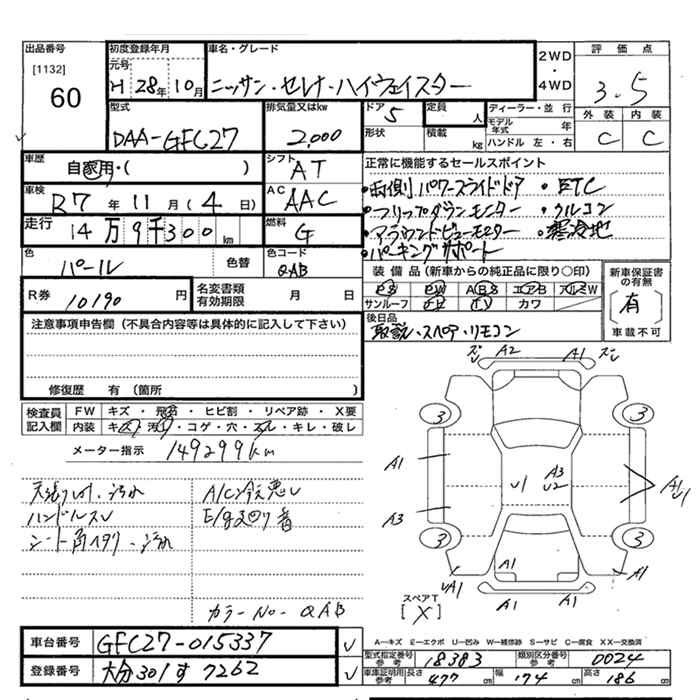 出品番号
[1132]
60
初度登録年月
元号
H 28年 10月
車名・グレード
ニッサン・セレナ・ハイウェイスター
2WD
・
4WD
評価点
3.5
外装 内装
C C
型式
DAA-GFC27
排気量又はkw
2,000
ドア
5
形状
定員
人
積載
kg
ディーラー・並行
モデル年式 年
ハンドル 左・右
車歴
自家用・( )
シフト
AT
車検
R7年 11月 (4日)
AC
AAC
走行
14万9千300km
燃料
G
色
パール
色替
色コード
QAB
R券
10190円
名変書類
有効期限
月 日
正常に機能するセールスポイント
・両側パワースライドドア ・ETC
・フリップダウンモニター ・クルコン
・アラウンドビューモニター ・寒冷地
・パーキングサポート
装備品(新車からの純正品に限り○印)
PS PW ABS エアB アルミW
サンルーフ ナビ TV カワ
新車保証書
の有無
有
車載不可
後日品
取説・スペア・リモコン
注意事項申告欄(不具合内容等は具体的に記入して下さい)
修復歴 有(箇所 )
検査員
記入欄
FW キズ・飛石・ヒビ割・リペア跡・X要
内装 キズ・汚れ・コゲ・穴・スレ・キレ・破レ
メーター指示 149299km
天張り汚れ
A/C冷え悪し
ハンドルスレ
シート
カラーNo-QAB
A2 A1
3 3
A1
A3
U1
A3
U2
A1
U1
3 3
UA1
A1
A1
A1
A1
スペアT
[X]
A―キズ E―エクボ U―凹み W―補修跡 S―サビ C―腐食 XX―交換済
車台番号 GFC27-015337
登録番号 大分301す7262
型式指定番号
参考
18383
類別区分番号
参考
0024
車庫証明用
参考
長さ 477cm 幅 174cm 高さ 186cm